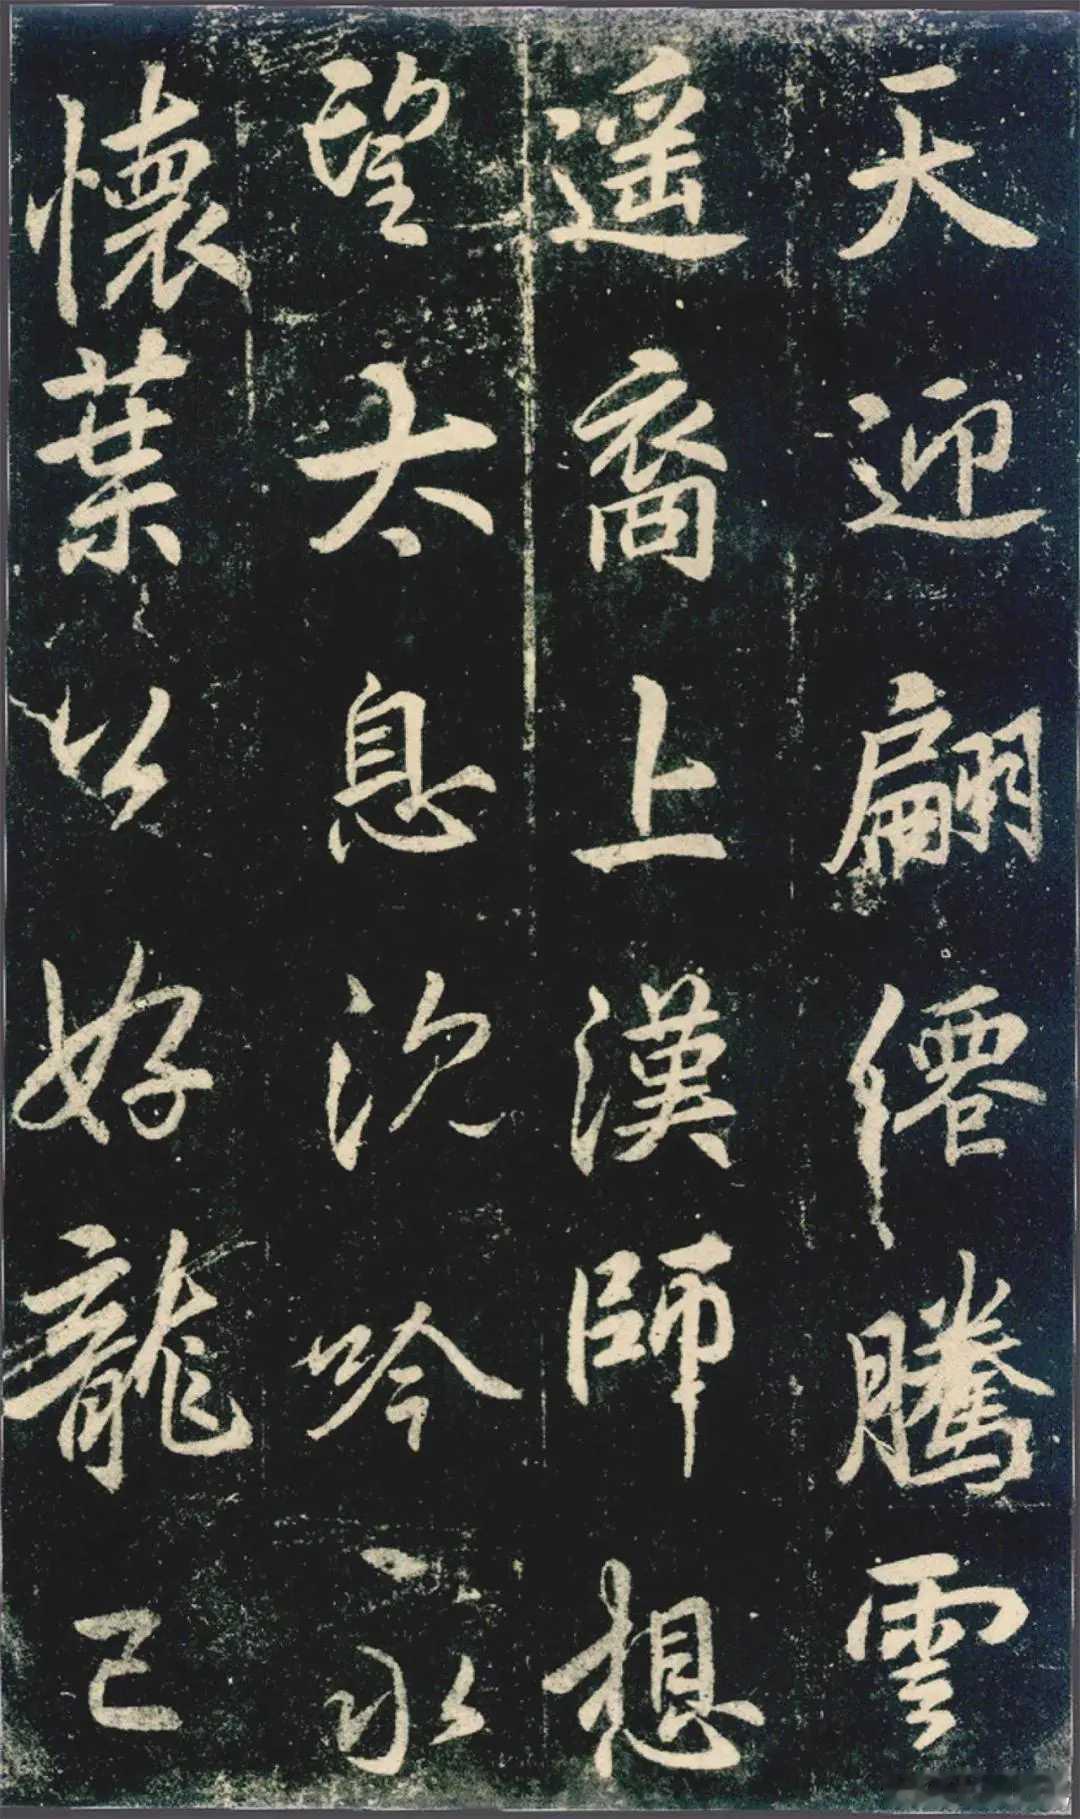 天迎翩僊騰雲
遥裔上漢師想
望太息沉吟永
懷葉以好龍已